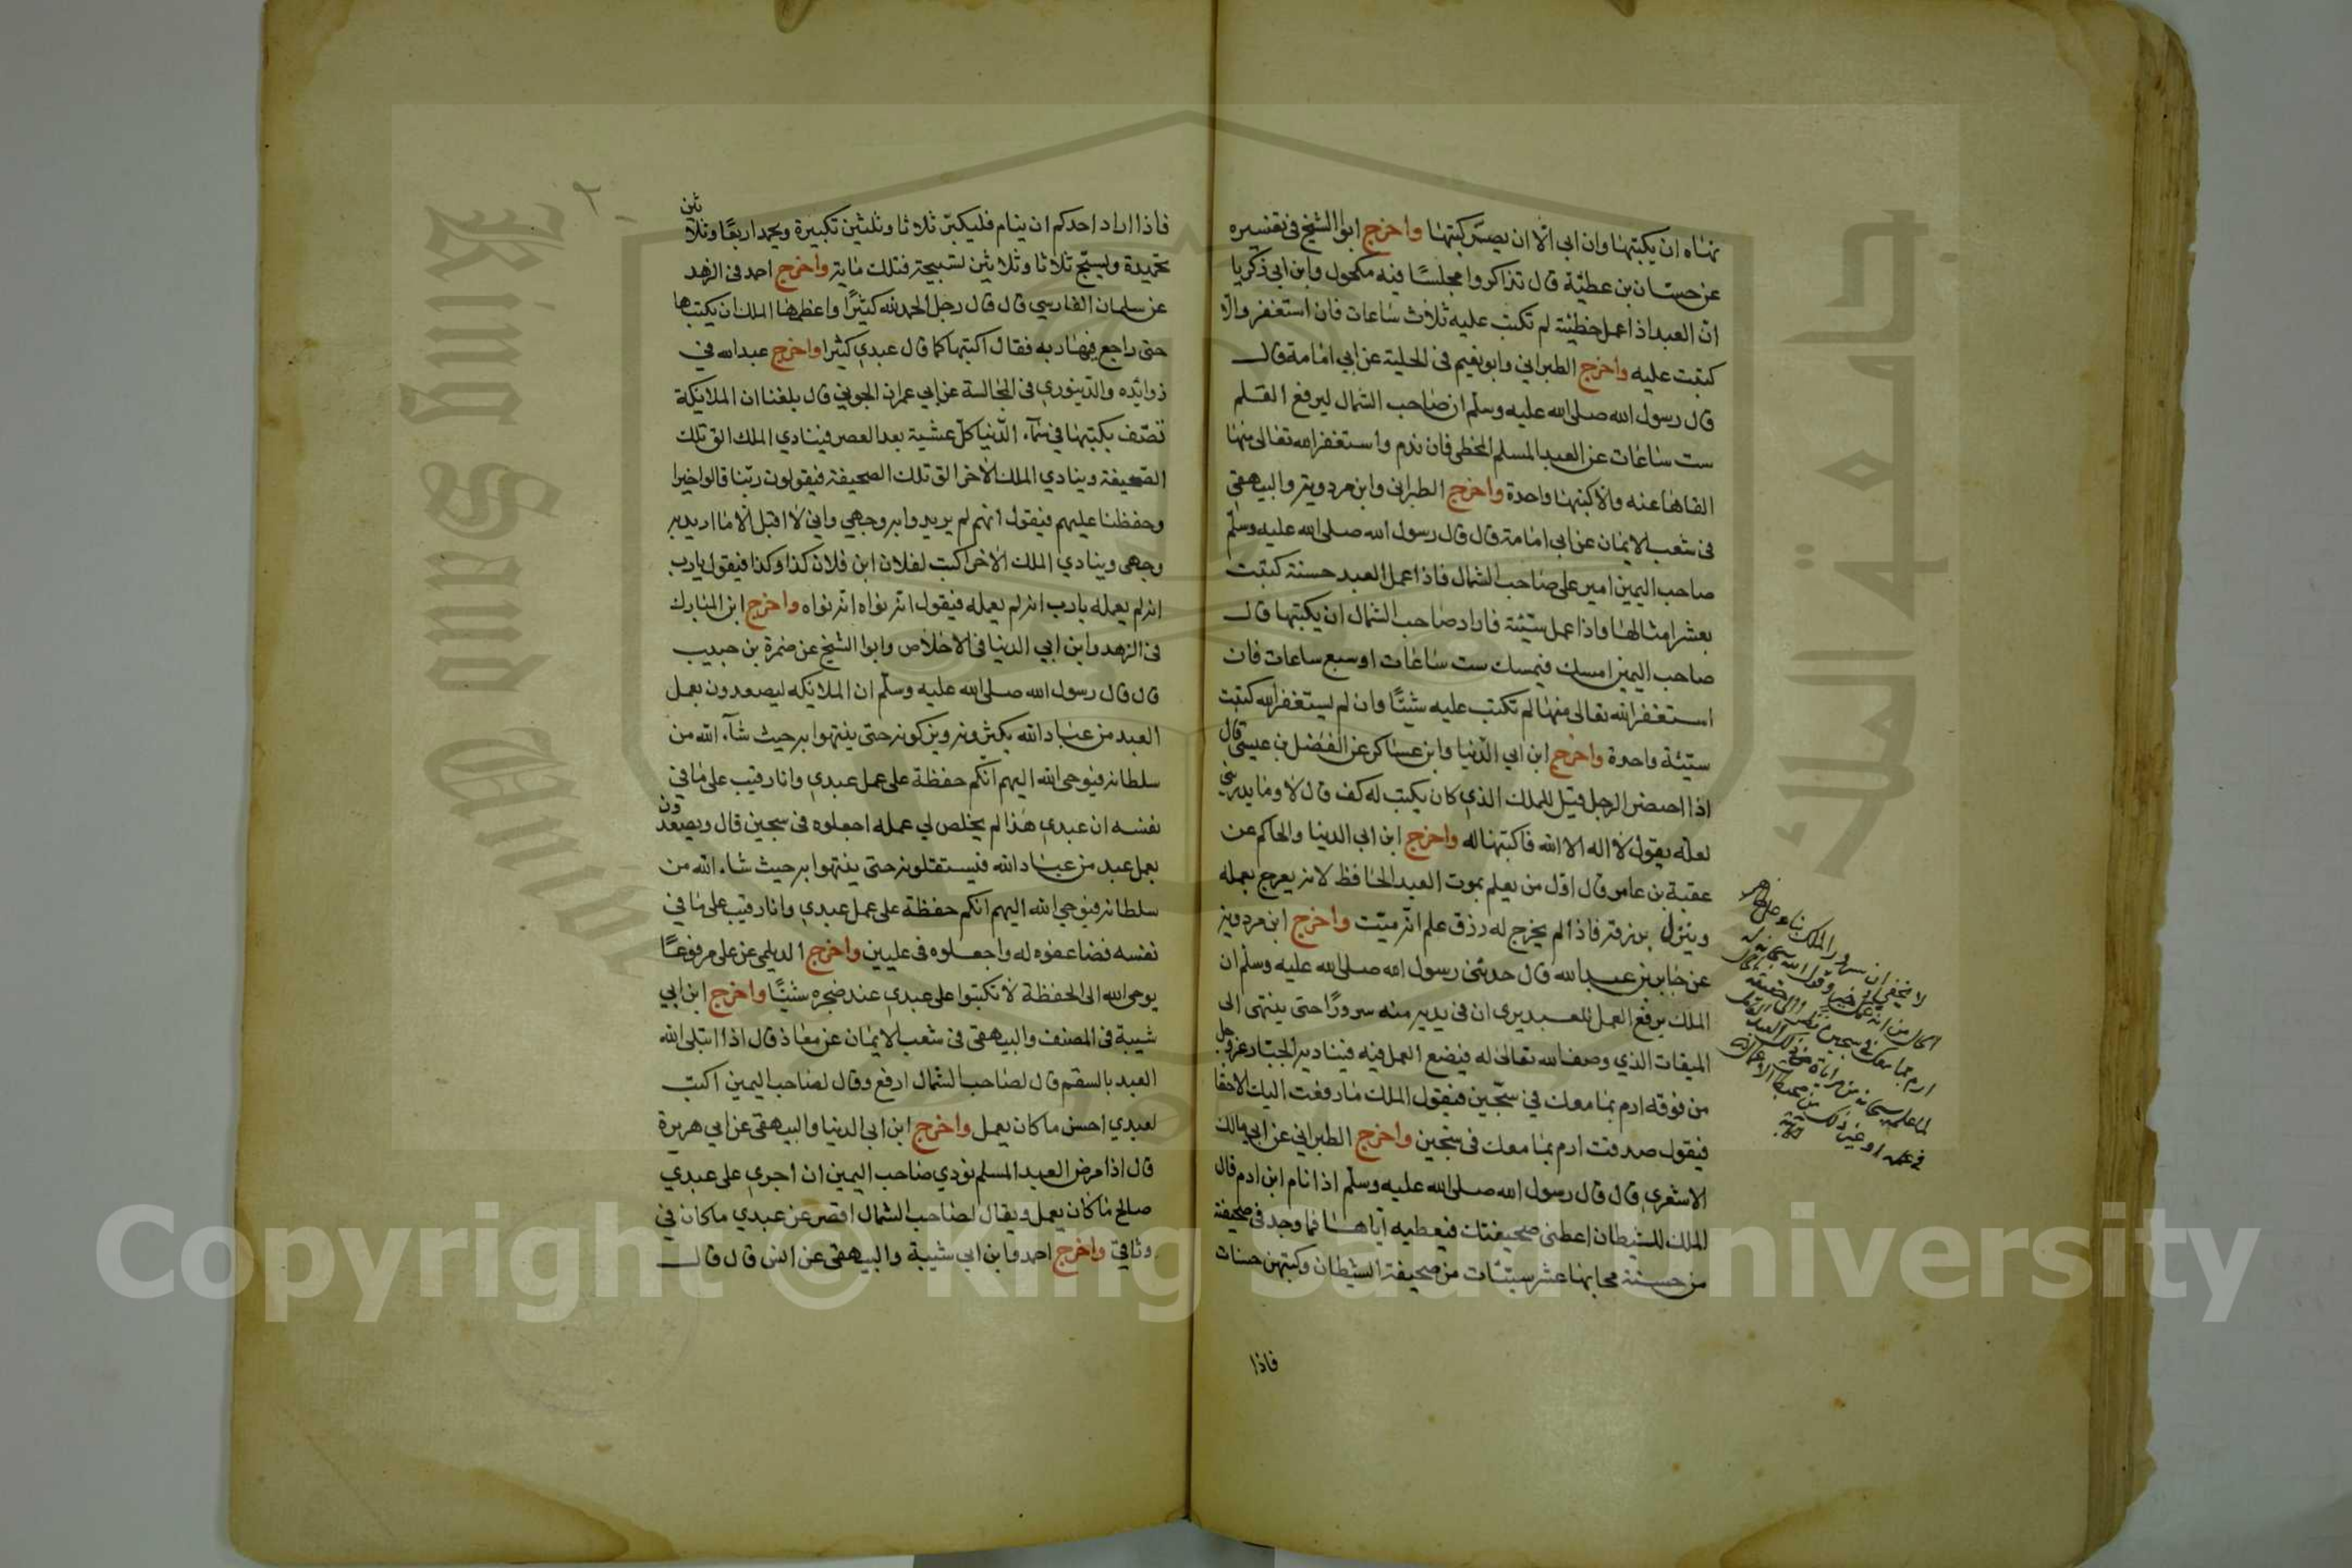 نهاه ان يكتبها وان ابى الا ان يصير كتبها واخرج ابوا الشيخ فى تفسيره
عن حسان بن عطية قال تذاكروا مجلسا فيه مكحول وابن ابي زكريا
ان العبد اذا عمل خطيئة لم تكتب عليه ثلاث ساعات فان استغفر والا
كتبت عليه واخرج الطبراني وابو نعيم فى الحلية عن ابي امامة قال
قال رسول الله صلى الله عليه وسلم ان صاحب الشمال ليرفع القلم
ست ساعات عن العبد المسلم المخطى فان ندم واستغفر الله تعالى منها
القاها عنه والا كتبها واحدة واخرج الطبرانى وابن مردويه والبيهقي
فى شعب الايمان عن ابى امامة قال قال رسول الله صلى الله عليه وسلم
صاحب اليمين امير على صاحب الشمال فاذا عمل العبد حسنة كتبت
بعشر امثالها واذا عمل سيئة فاراد صاحب الشمال ان يكتبها قال
صاحب اليمين امسك فيمسك ست ساعات او سبع ساعات فان
استغفر الله تعالى منها لم تكتب عليه شيئا وان لم يستغفر الله كتبت
سيئة واحدة واخرج ابن ابي الدنيا وابن عساكر عن الفضل بن عيسى قال
اذا احتضر الرجل قيل للملك الذي كان يكتب له كف قال لا وما يدريني
لعله يقول لا اله الا الله فاكتبها له واخرج ابن ابي الدنيا والحاكم عن
عقبة بن عامر قال اول من يعلم بموت العبد الحافظ لانه يعرج بعمله
وينزل برزقه فاذا لم يخرج له رزق علم انه ميت واخرج ابن مردويه
عن جابر بن عبد الله قال حدثنى رسول الله صلى الله عليه وسلم ان
الملك يرفع العمل للعبد يرى ان فى يديه منه سرورا حتى ينتهى الى
الميقات الذي وصف الله تعالى له فيضع العمل فيه فيناديه الجبار عز وجل
من فوقه ارم بما معك في سجين فيقول الملك ما رفعت اليك الا حقا
فيقول صدقت ارم بما معك فى سجين واخرج الطبراني عن ابي مالك
الاشعري قال قال رسول الله صلى الله عليه وسلم اذا نام ابن ادم قال
الملك للشيطان اعطنى صحيفتك فيعطيه اياها فما وجد فى صحيفة
من حسنة محا بها عشر سيئات من صحيفة الشيطان وكتبهن حسنات
فاذا
فاذا اراد احدكم ان ينام فليكبر ثلاثا وثلثين تكبيرة ويحمد اربعا وثلاثين
تحميدة ويسبح ثلاثا وثلاثين تسبيحة فتلك ماية واخرج احد فى الزهد
عن سلمان الفارسي قال قال رجل الحمد لله كثيرا واعظمها الملك ان يكتبها
حتى راجع فيها ربه فقال اكتبها كما قال عبدي كثيرا واخرج عبد الله في
زوائده والدينوري فى المجالسة عن ابي عمران الجوني قال بلغنا ان الملايكة
تصف بكتبها في سماء الدنيا كل عشية بعد العصر فينادي الملك الق تلك
الصحيفة وينادي الملك الاخر الق تلك الصحيفة فيقولون ربنا قالوا خيرا
وحفظنا عليهم فيقول انهم لم يريدوا به وجهي واني لا اقبل الا ما اريد به
وجهى وينادي الملك الاخر اكتب لفلان ابن فلان كذا وكذا فيقول يا رب
انه لم يعمله يا رب انه لم يعمله فيقول انه نواه انه نواه واخرج ابن المبارك
فى الزهد وابن ابي الدنيا فى الاخلاص وابوا الشيخ عن ضمرة بن حبيب
قال قال رسول الله صلى الله عليه وسلم ان الملايكه ليصعدون بعمل
العبد من عباد الله يكثرونه ويزكونه حتى ينتهوا به حيث شاء الله من
سلطانه فيوحى الله اليهم انكم حفظة على عمل عبدي وانا رقيب على ما في
نفسه ان عبدي هذا لم يخلص لي عمله اجعلوه فى سجين قال ويصعدون
بعمل عبد من عباد الله فيستقلونه حتى ينتهوا به حيث شاء الله من
سلطانه فيوحي الله اليهم انكم حفظة على عمل عبدي وانا رقيب على ما في
نفسه فضاعفوه له واجعلوه فى عليين واخرج الديلمي عن على مرفوعا
يوحى الله الى الحفظة لا تكتبوا على عبدي عند ضجره شيئا واخرج ابن ابي
شيبة فى المصنف والبيهقى فى شعب الايمان عن معاذ قال اذا ابتلى الله
العبد بالسقم قال لصاحب الشمال ارفع وقال لصاحب اليمين اكتب
لعبدي احسن ما كان يعمل واخرج ابن ابى الدنيا والبيهقى عن ابي هريرة
قال اذا مرض العبد المسلم نودي صاحب اليمين ان اجري على عبدي
صالح ما كان يعمل ويقال لصاحب الشمال اقصر عن عبدي ما كان في
وثاقي واخرج احمد وابن ابي شيبة والبيهقى عن انس قال قال
Copyright © King Saud University
King Saud University